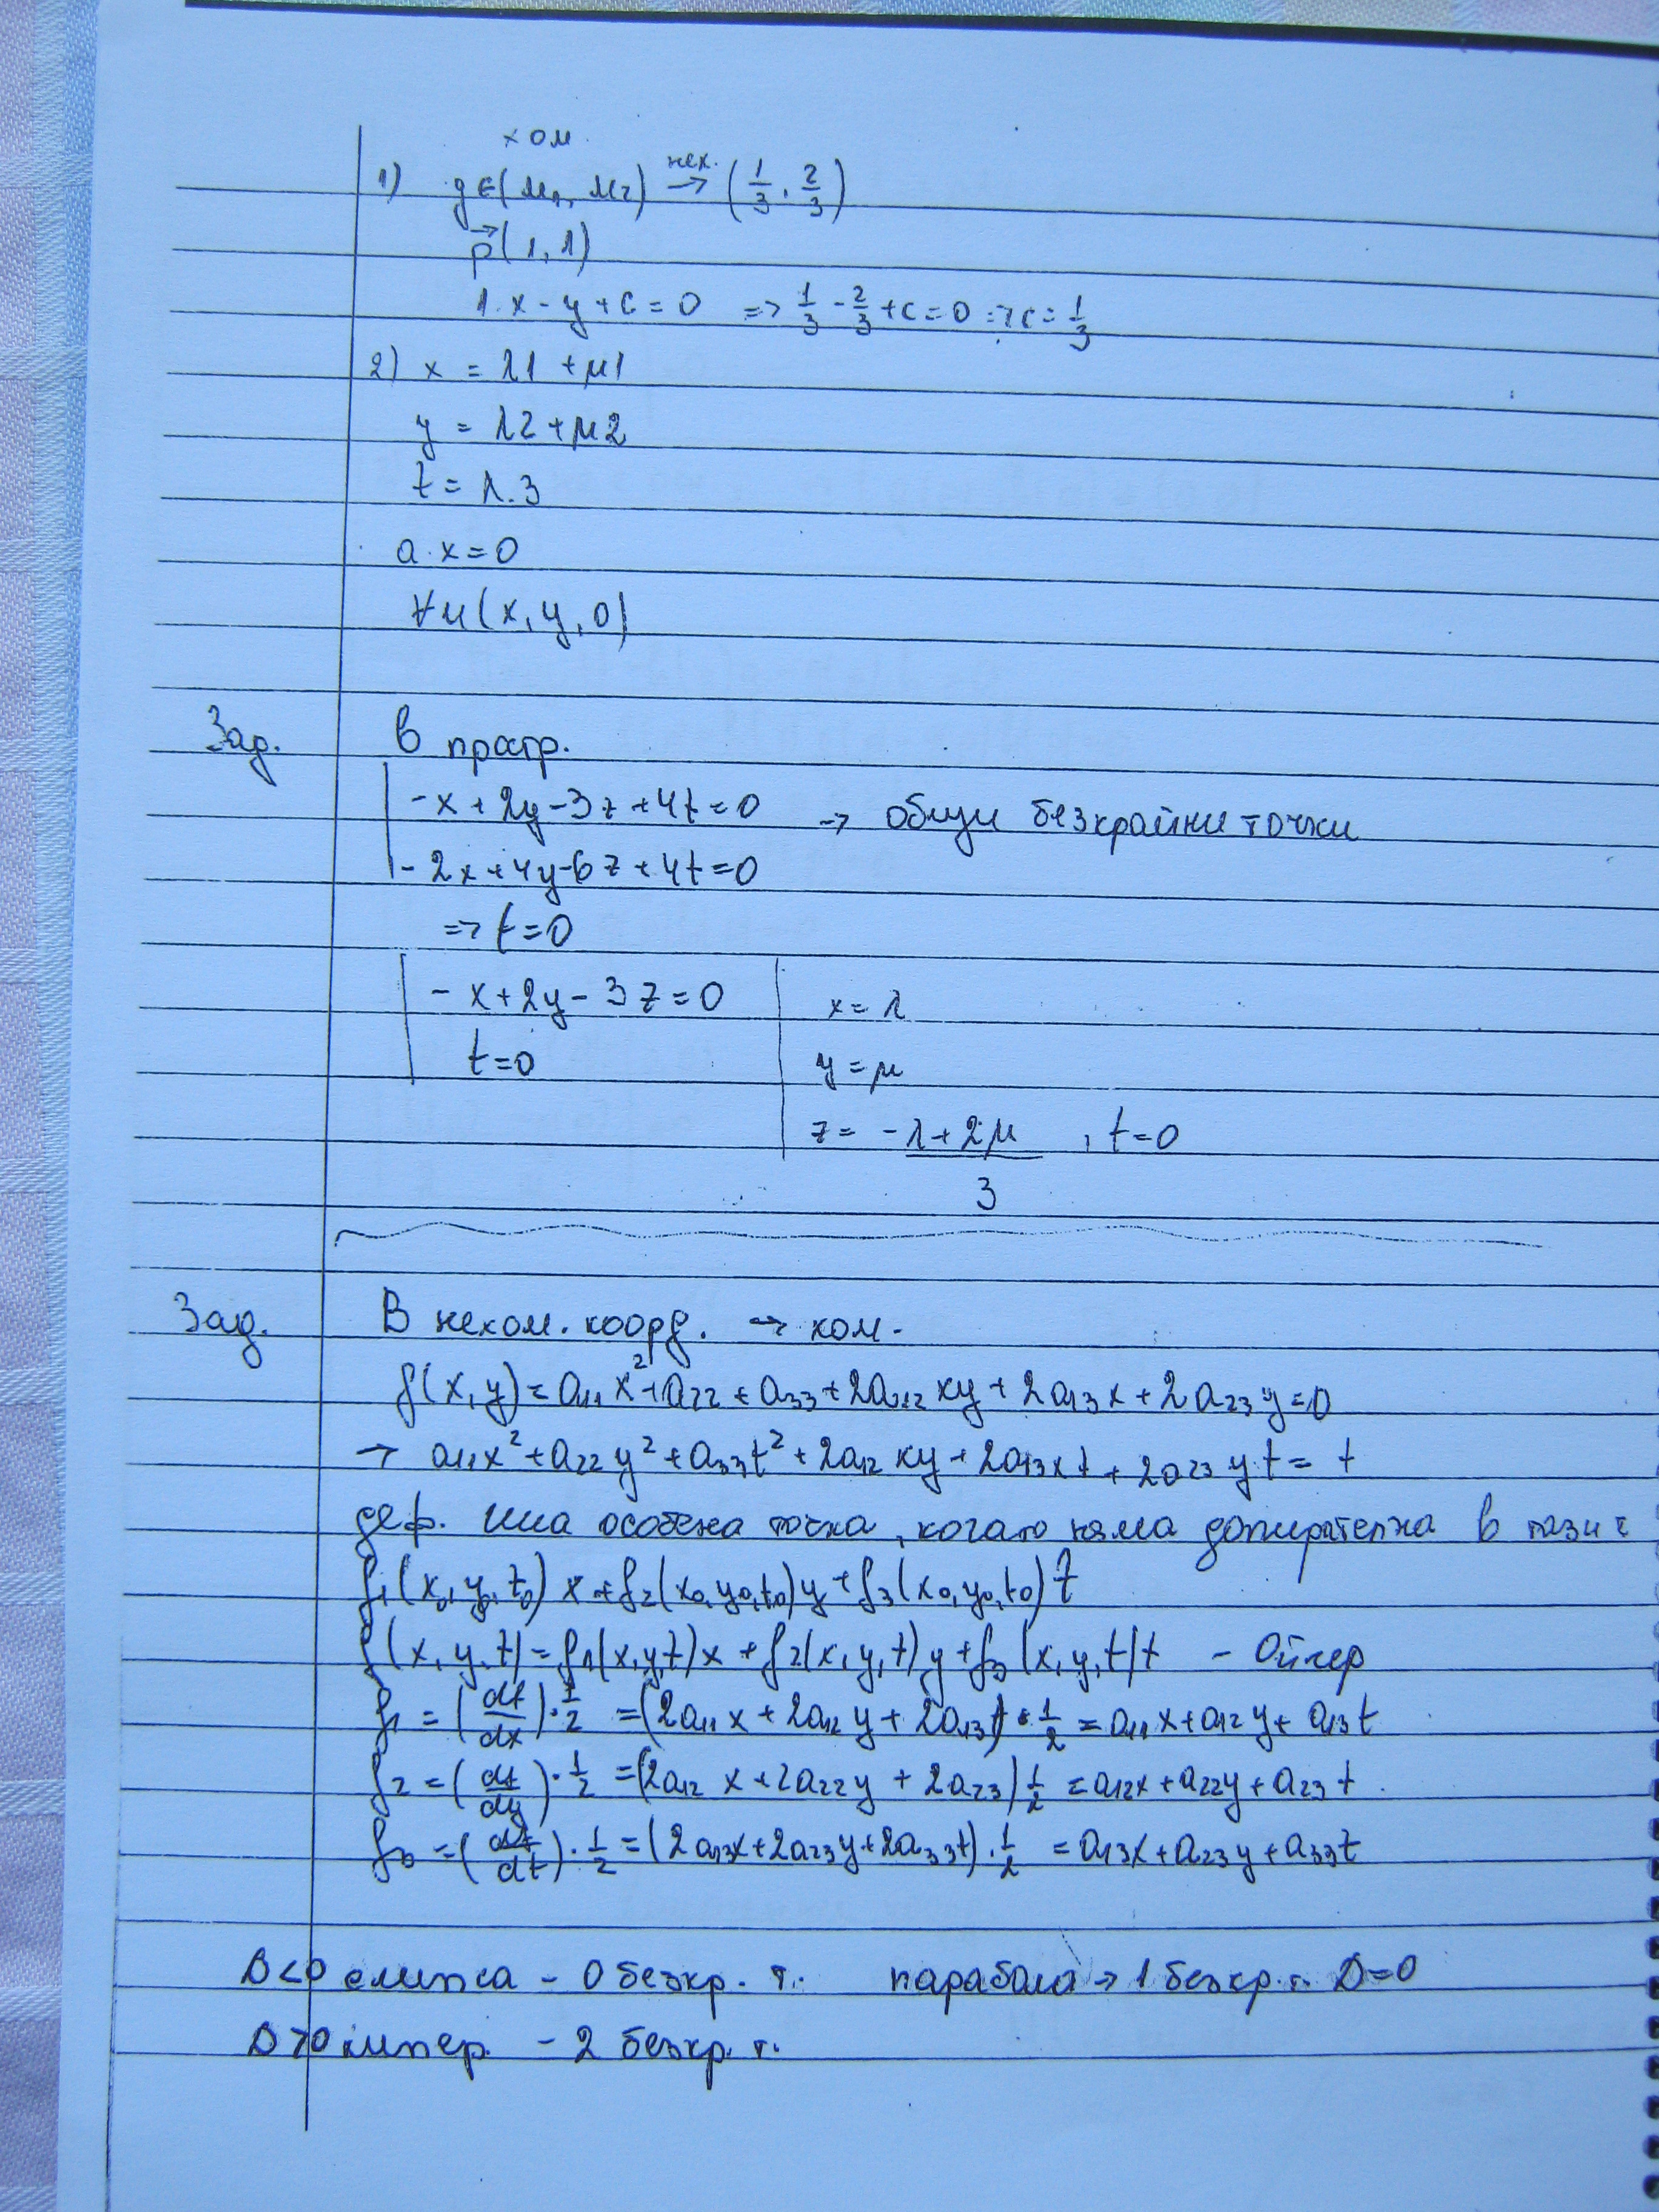 хом.
1) g ∈ (M₁, M₂) нех. → (1/3, 2/3)
p⃗(1, 1)
1.x - y + c = 0 => 1/3 - 2/3 + c = 0 => c = 1/3
2) x = λ1 + μ1
y = λ2 + μ2
t = λ.3
a. x = 0
∀ u(x, y, 0)
Зад. В простр.
-x + 2y - 3z + 4t = 0 → общи безкрайни точки
-2x + 4y - 6z + 4t = 0
=> t = 0
-x + 2y - 3z = 0 x = λ
t = 0 y = μ
z = (-λ + 2μ)/3, t = 0
Зад. В нехом. коорд. → хом.
f(x, y) = a₁₁x² + a₂₂ + a₃₃ + 2a₁₂xy + 2a₁₃x + 2a₂₃y = 0
→ a₁₁x² + a₂₂y² + a₃₃t² + 2a₁₂xy + 2a₁₃xt + 2a₂₃yt = t
деф. Има особена точка, когато няма допирателна в тази т
f₁(x₀, y₀, t₀) x + f₂(x₀, y₀, t₀) y + f₃(x₀, y₀, t₀) t
f(x, y, t) = f₁(x, y, t) x + f₂(x, y, t) y + f₃(x, y, t) t - Ойлер
f₁ = (df/dx).1/2 = (2a₁₁x + 2a₁₂y + 2a₁₃t).1/2 = a₁₁x + a₁₂y + a₁₃t
f₂ = (df/dy).1/2 = (2a₁₂x + 2a₂₂y + 2a₂₃) 1/2 = a₁₂x + a₂₂y + a₂₃t.
f₃ = (df/dt).1/2 = (2a₁₃x + 2a₂₃y + 2a₃₃t).1/2 = a₁₃x + a₂₃y + a₃₃t
D<0 елипса - 0 безкр. т. парабола → 1 безкр. т. D=0
D>0 хипер. - 2 безкр. т.